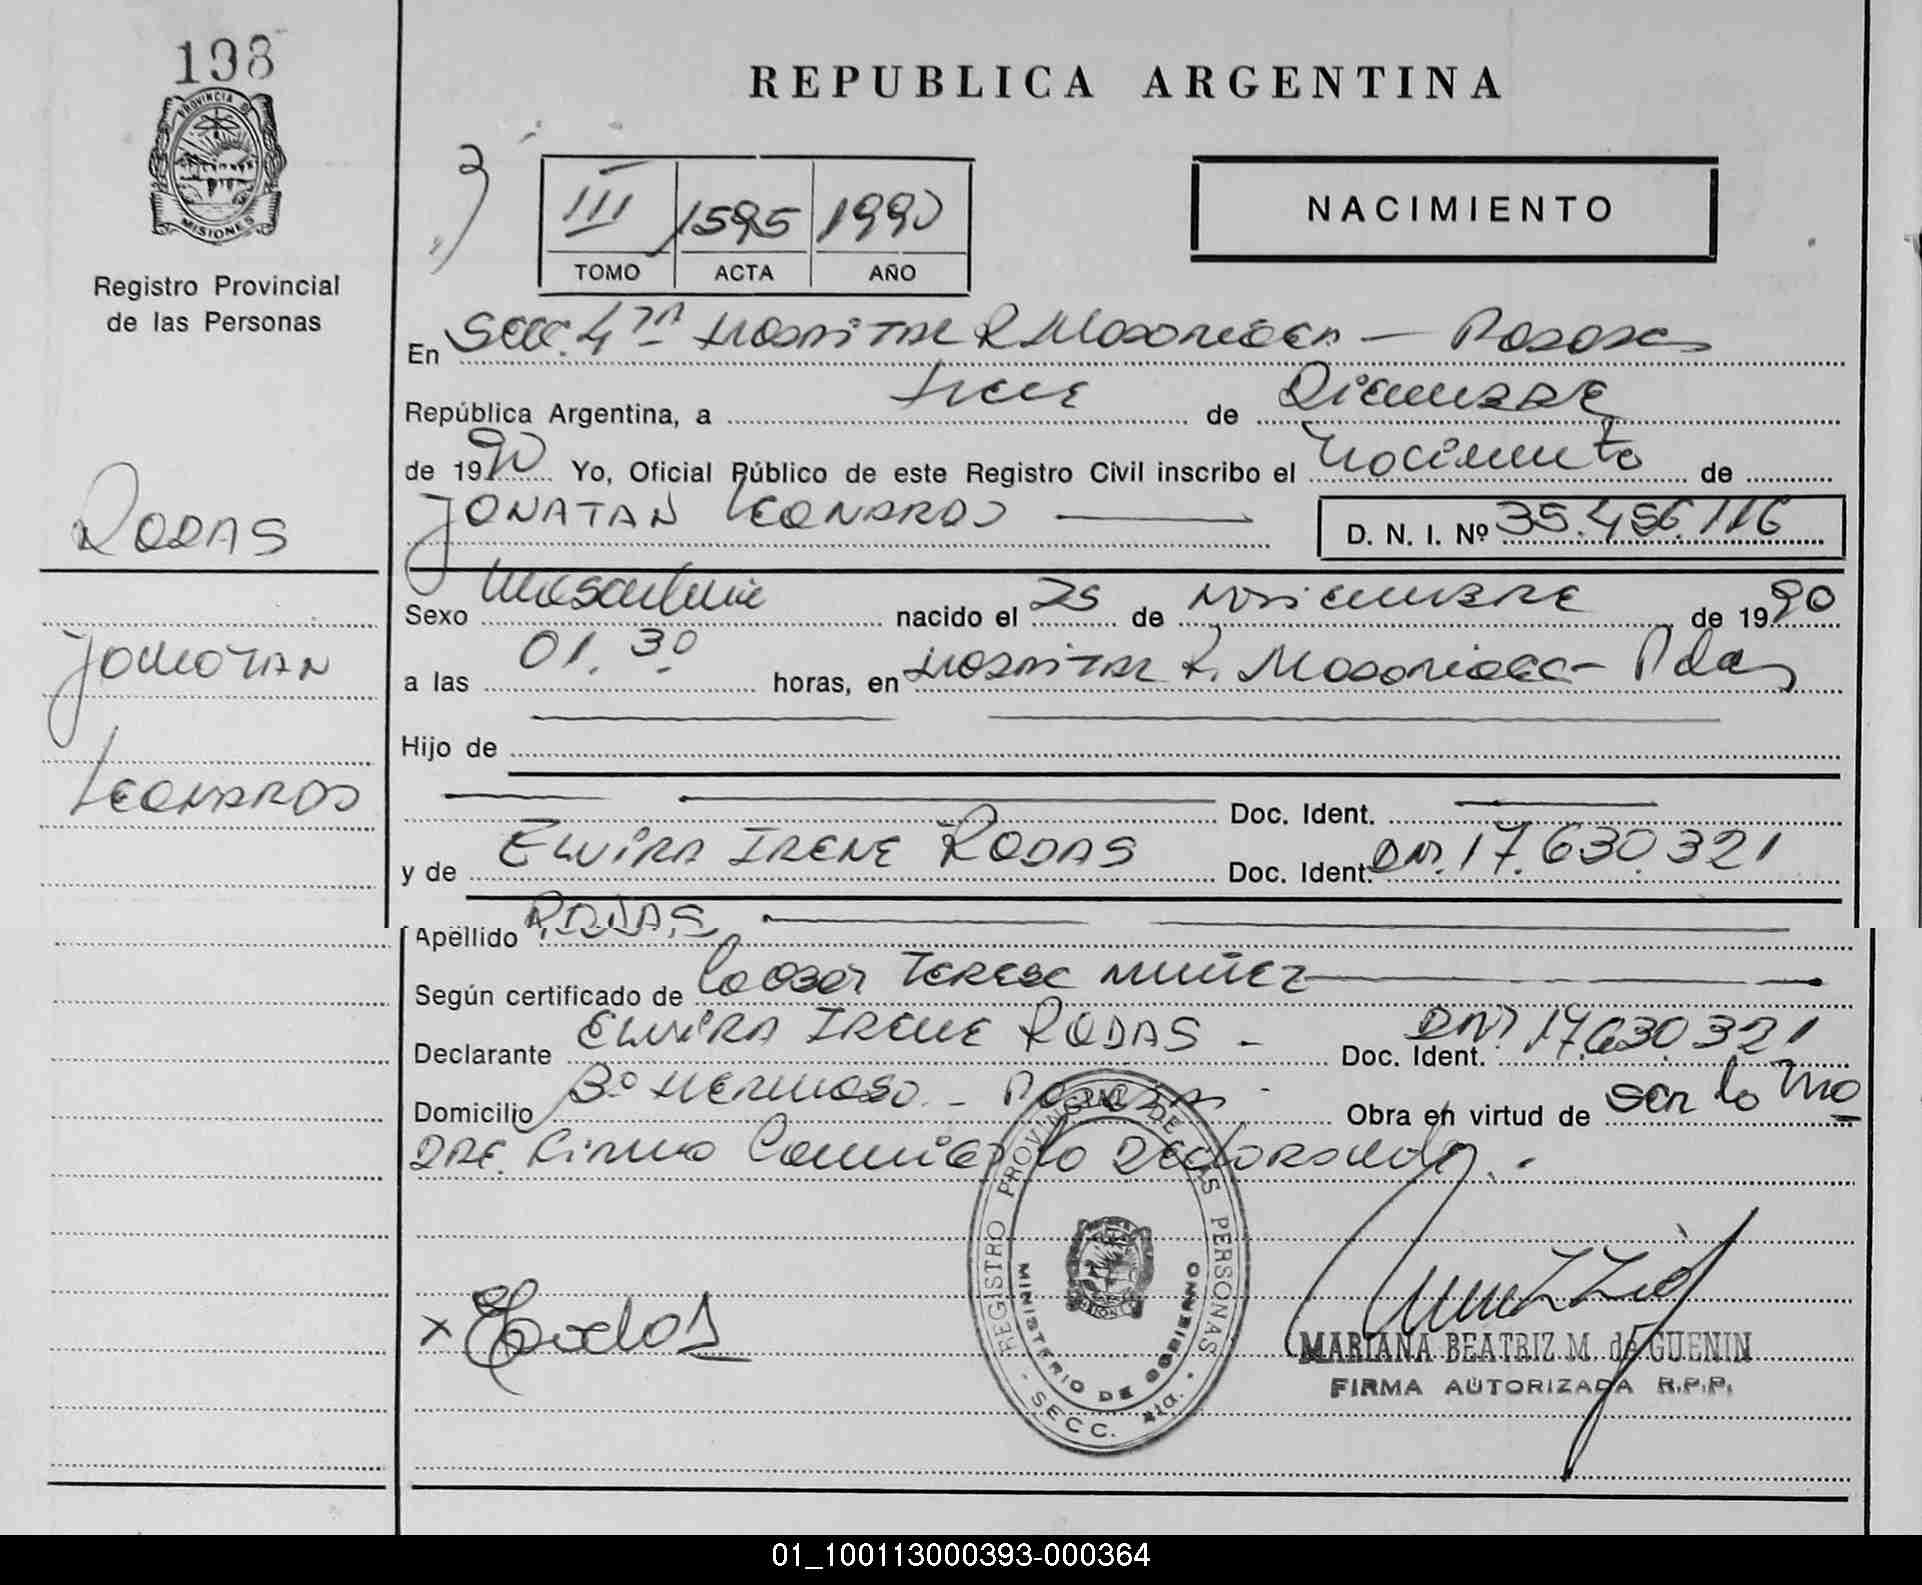 198
PROVINCIA D
MISIONES
Registro Provincial
de las Personas
RODAS
JONATAN
LEONARDO
REPUBLICA ARGENTINA
III 1595 1990
TOMO ACTA AÑO
NACIMIENTO
En Secc. 4ta Hospital R Madariaga — Posadas
República Argentina, a trece de Diciembre
de 1990 Yo, Oficial Público de este Registro Civil inscribo el nacimiento de
JONATAN LEONARDO D. N. I. Nº 35.456.116
Sexo masculino nacido el 25 de NOVIEMBRE de 1990
a las 01.30 horas, en Hospital R. Madariaga - Pdas
Hijo de
Doc. Ident.
y de ELVIRA IRENE RODAS Doc. Ident. DNI. 17.630.321
Apellido RODAS
Según certificado de la TERESA NUÑEZ
Declarante ELVIRA IRENE RODAS - Doc. Ident. DNI 17.630.321
Domicilio Bº HERMOSO - Posadas - Obra en virtud de ser la ma
DRE. Firma Conmigo la Declarante.
REGISTRO PROVINCIAL DE LAS PERSONAS
MINISTERIO DE GOBIERNO
SECC. 4ta.
x
MARIANA BEATRIZ M. de GUENIN
FIRMA AUTORIZADA R.P.P.
01_100113000393-000364